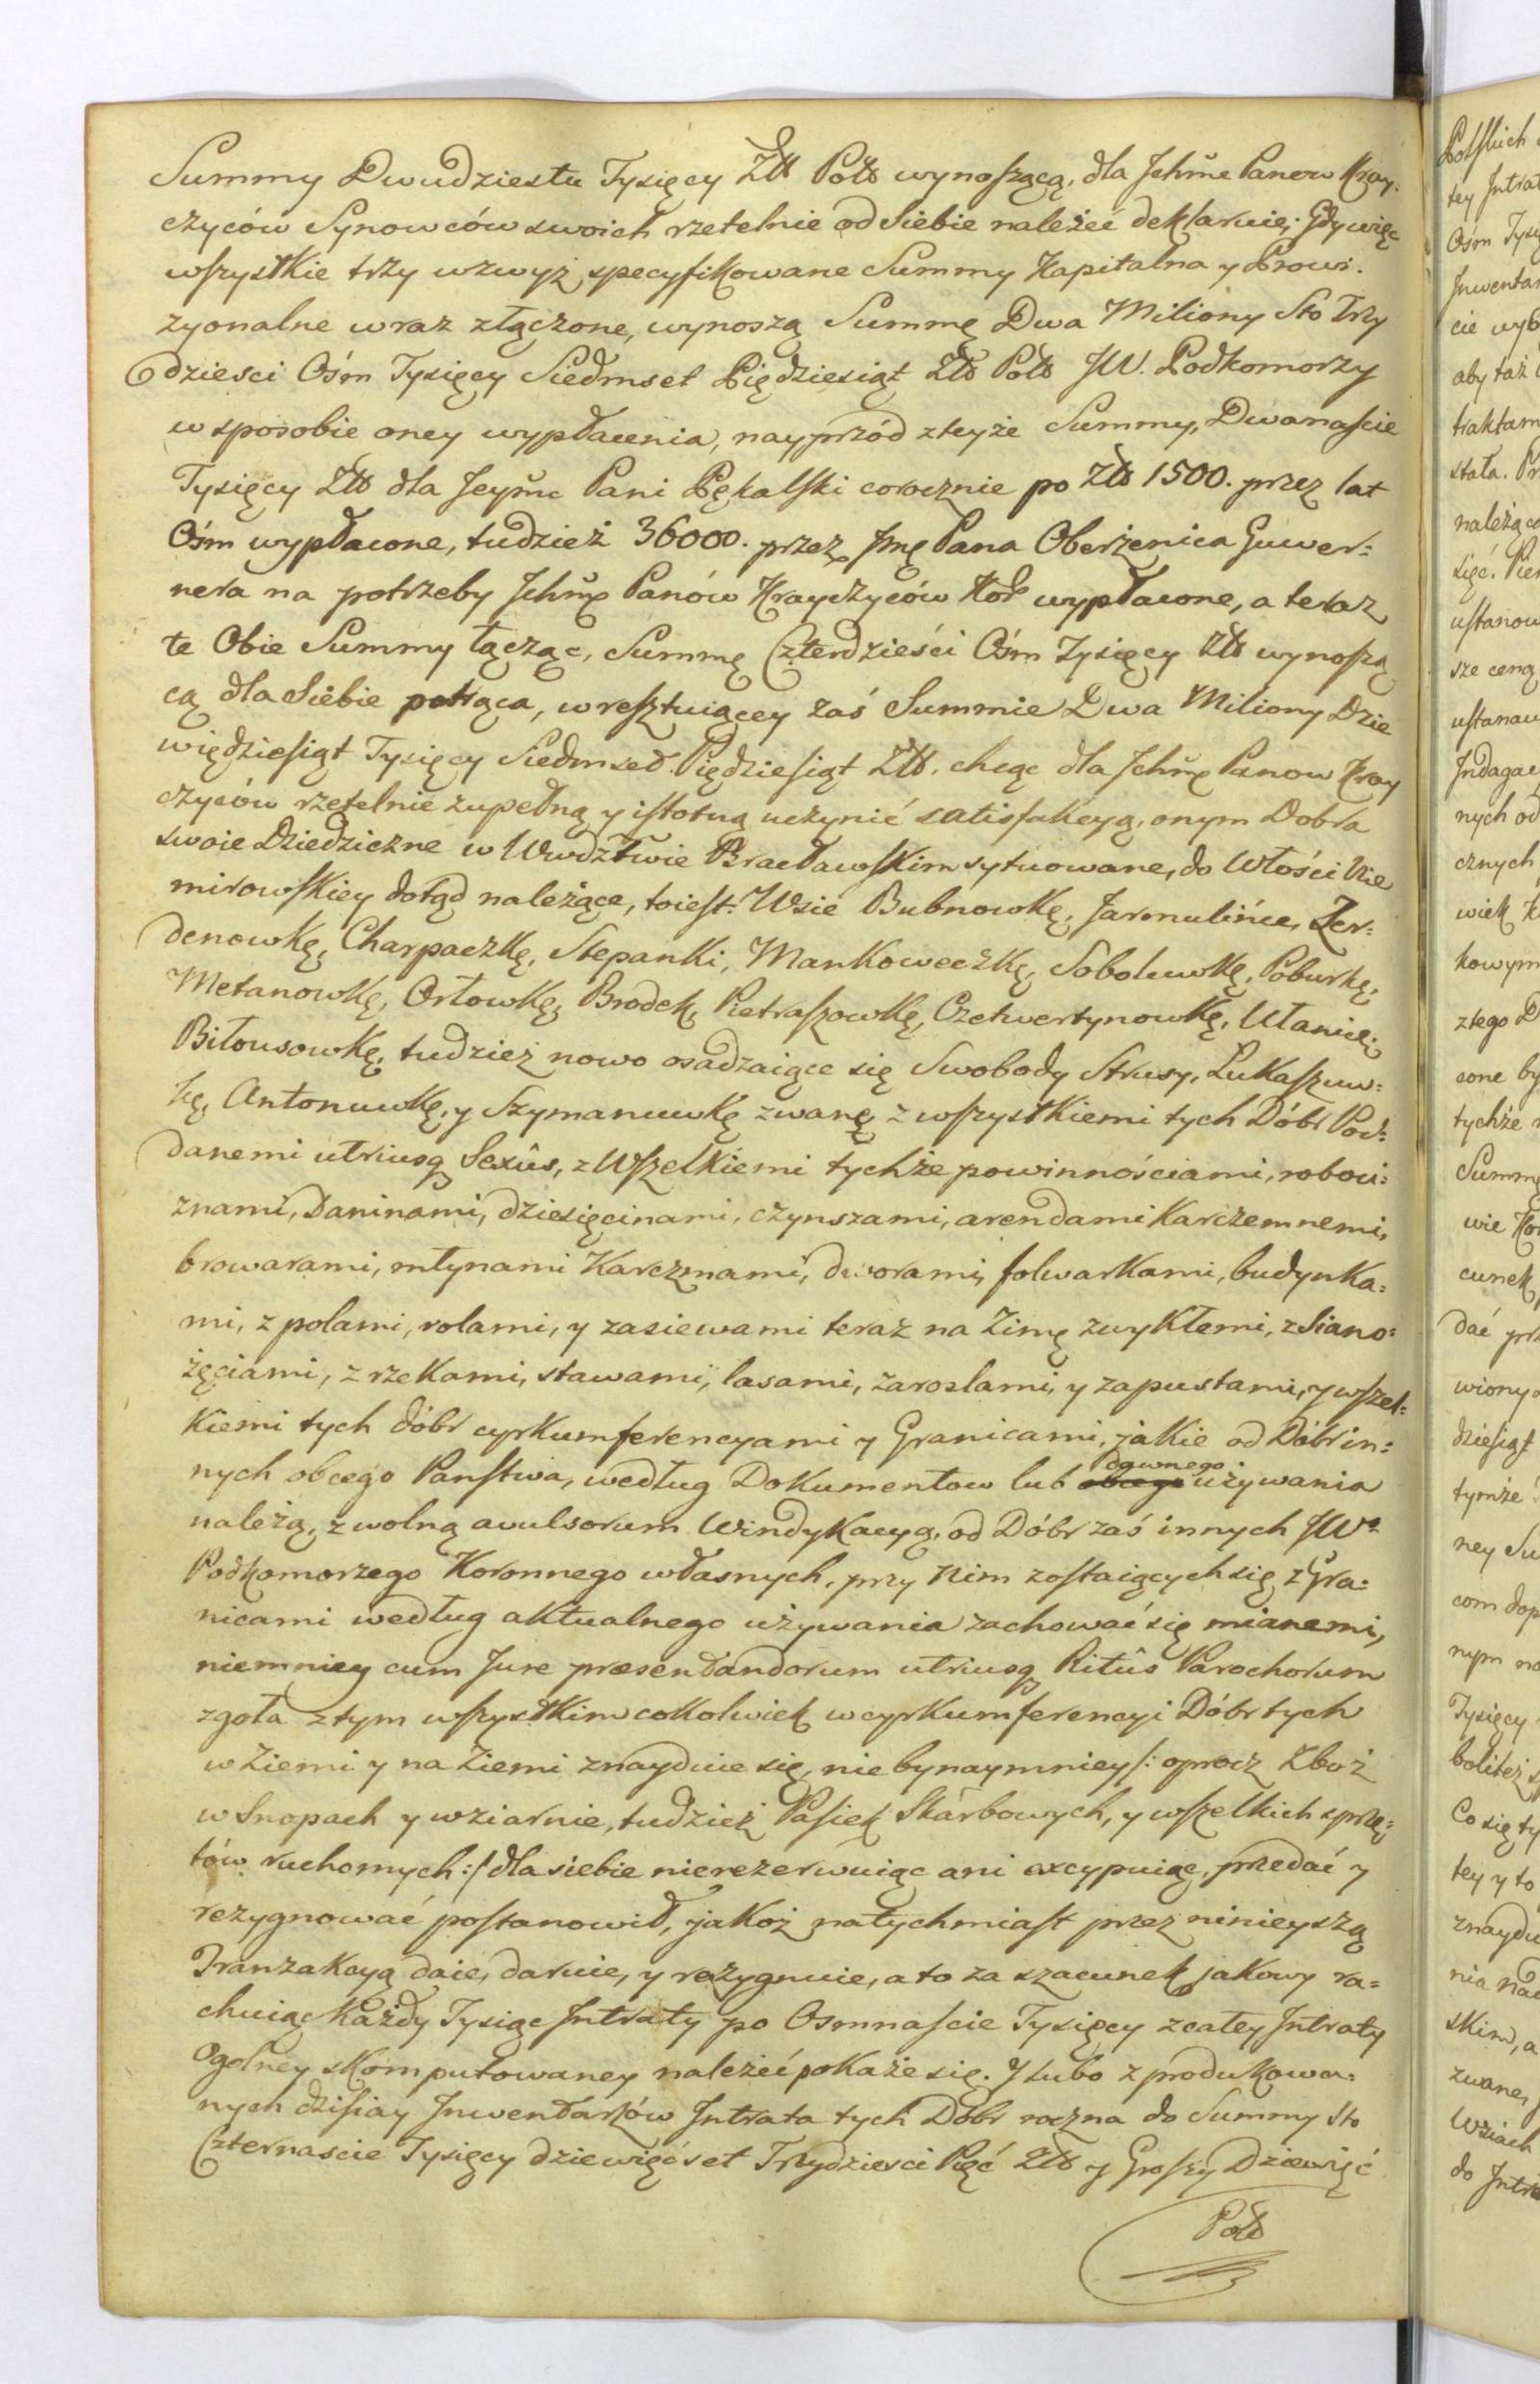 Summy Dwudziestu Tysięcy Złł Polł wynoszącą, dla Jchmc Panow Kray-
czyców Synowców swoich rzetelnie od Siebie należeć deklaruie; Gdy więc
wszystkie trzy wzwyż specyfikowane Summy Kapitalna y Prowi-
zyonalne wraz złączone, wynoszą Summę Dwa Miliony Sto Trzy
dziesci Ośm Tysięcy Siedmset Pięćdziesiąt Złł Polł JW. Podkomorzy
w sposobie oney wypłacenia, nayprzód z teyże Summy, Dwanaście
Tysięcy Złł dla Jeymc Pani Pękalski corocznie po Złł 1500. przez lat
Ośm wypłacone, tudzież 36000. przez Jmę Pana Oberżenica Guwer=
nera na potrzeby Jchmc Panów Krayczyców Kor wypłacone, a teraz
te Obie Summy łącząc, Summę Czterdzieści Ośm Tysięcy Złł wynoszą
cą dla Siebie potrąca, w resztuiącey zaś Summie Dwa Miliony Dzie
więdziesiąt Tysięcy Siedmset Pięćdziesiąt Złł. chcąc dla Jchmc Panow Kray
czyców rzetelnie zupełną y istotną uczynić satisfakcyą, onym Dobra
swoie Dziedziczne w Wwdztwie Bracławskim sytuowane, do Włości Nie
mirowskiey dotąd należące, toiest: Wsie Bubnowkę, Jarmulińce, Żer=
denowkę, Charpaczkę, Stepanki, Mankoweczkę, Soboluwkę, Poburkę,
Metanowkę, Orłowkę, Brodek, Pietraszowkę, Czetwertynowkę, Ułanicę,
Biłousowkę, tudzież nowo osadzaiące się Swobody Strusy, Łukaszuw=
kę, Antonuwkę, y Szymanuwkę zwanę z wszystkiemi tych Dóbr Pod=
danemi utriusq Sexûs, z Wszelkiemi tychże powinnościami, roboci=
znami, Daninami, dziesięcinami, czynszami, arendami Karczemnemi,
browarami, młynami Karczmami, dworami, folwarkami, budynka=
mi, z polami, rolami, y zasiewami teraz na Zimę zwykłemi, z Siano=
żęciami, z rzekami, stawami, lasami, zaroslami, y zapustami, y wszel=
kiemi tych dóbr cyrkumferencyami y Granicami, jakie od Dóbr in=
nych obcego Państwa, według Dokumentow lub obcego dawnego używania
należą, z wolną avulsorum Windykacyą, od Dóbr zaś innych JWo
Podkomorzego Koronnego własnych, przy Nim zostaiących się z Gra=
nicami według aktualnego używania zachować się mianemi,
niemniey cum Jure præsentandorum utriusq Ritûs Parochorum
zgoła z tym wszystkim cokolwiek w cyrkumferencyi Dóbr tych
w Ziemi y na Ziemi znayduie się, nie bynaymniey /: oprocz Zboż
w Snopach y w ziarnie, tudzież Pasiek Skarbowych, y wszelkich sprzę=
tów ruchomych :/ dla siebie nierezerwuiąc ani excypuiąc, przedać y
rezygnować postanowił, jakoż natychmiast przez ninieyszą
Tranzakcyą daie, daruie, y rezygnuie, a to za szacunek jakowy ra=
chuiąc Każdy Tysiąc Intraty po Osmnaście Tysięcy z całey Intraty
Ogolney skomputowaney należeć pokaże się. J lubo z produkowa=
nych dzisiay Inwentarzów Intrata tych Dóbr roczna do Summy Sto
Czternascie Tysięcy dziewięćset Trzydziesci Pięć Złł y Groszy Dziewięć
Polł